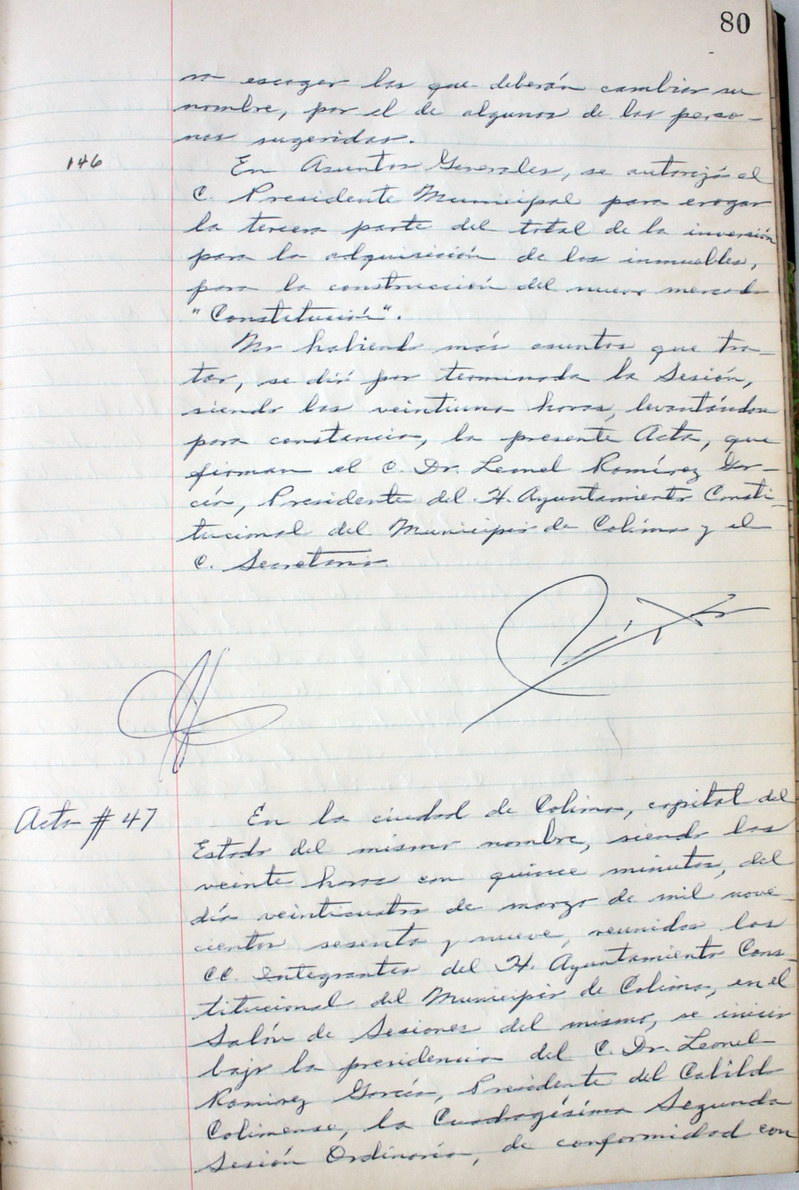 80
ra escoger las que deberán cambiar su
nombre, por el de algunos de las perso-
nas sugeridas.
146
En Asuntos Generales, se autorizó al
C. Presidente Municipal para erogar
la tercera parte del total de la inversión
para la adquisición de los inmuebles,
para la construcción del nuevo mercado
"Constitución".
No habiendo más asuntos que tra-
tar, se dió por terminada la Sesión,
siendo las veintiuna horas, levantándose
para constancia, la presente Acta, que
firman el C. Dr. Leonel Ramírez Gar-
cía, Presidente del H. Ayuntamiento Consti-
tucional del Municipio de Colima y el
C. Secretario
Acta # 47
En la ciudad de Colima, capital del
Estado del mismo nombre, siendo las
veinte horas con quince minutos, del
día veinticuatro de marzo de mil nove-
cientos sesenta y nueve, reunidos los
CC. Integrantes del H. Ayuntamiento Cons-
titucional del Municipio de Colima, en el
Salón de Sesiones del mismo, se inició
bajo la presidencia del C. Dr. Leonel
Ramírez García, Presidente del Cabildo
Colimense, la Cuadragésima Segunda
Sesión Ordinaria, de conformidad con